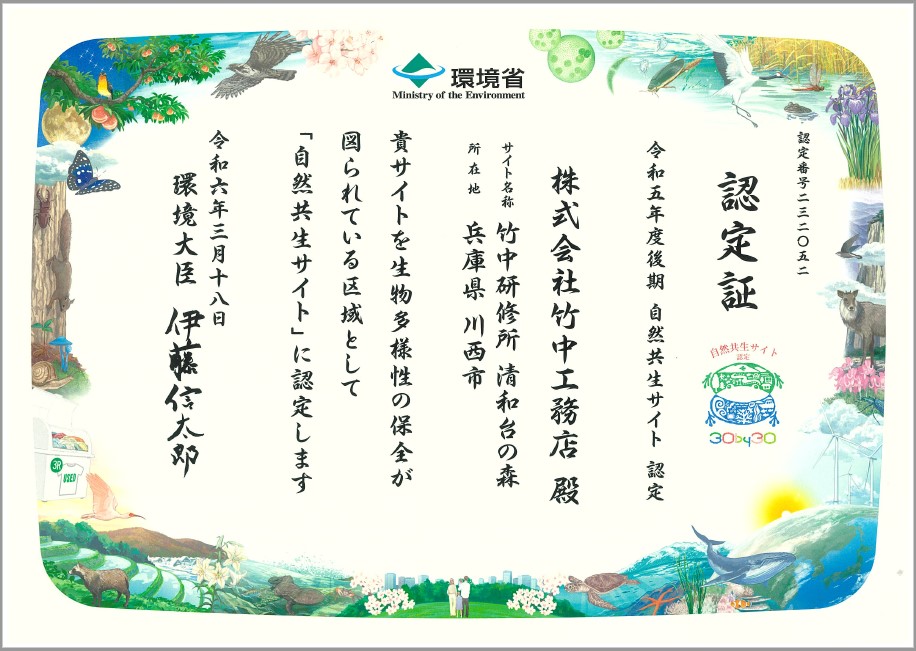 環境省
Ministry of the Environment
認定番号二三二〇五二
認定証
自然共生サイト
認定
30by30
令和五年度後期 自然共生サイト 認定
株式会社竹中工務店 殿
サイト名称 竹中研修所 清和台の森
所在地 兵庫県 川西市
貴サイトを生物多様性の保全が
図られている区域として
「自然共生サイト」に認定します
令和六年三月十八日
環境大臣 伊藤信太郎
3R
USED